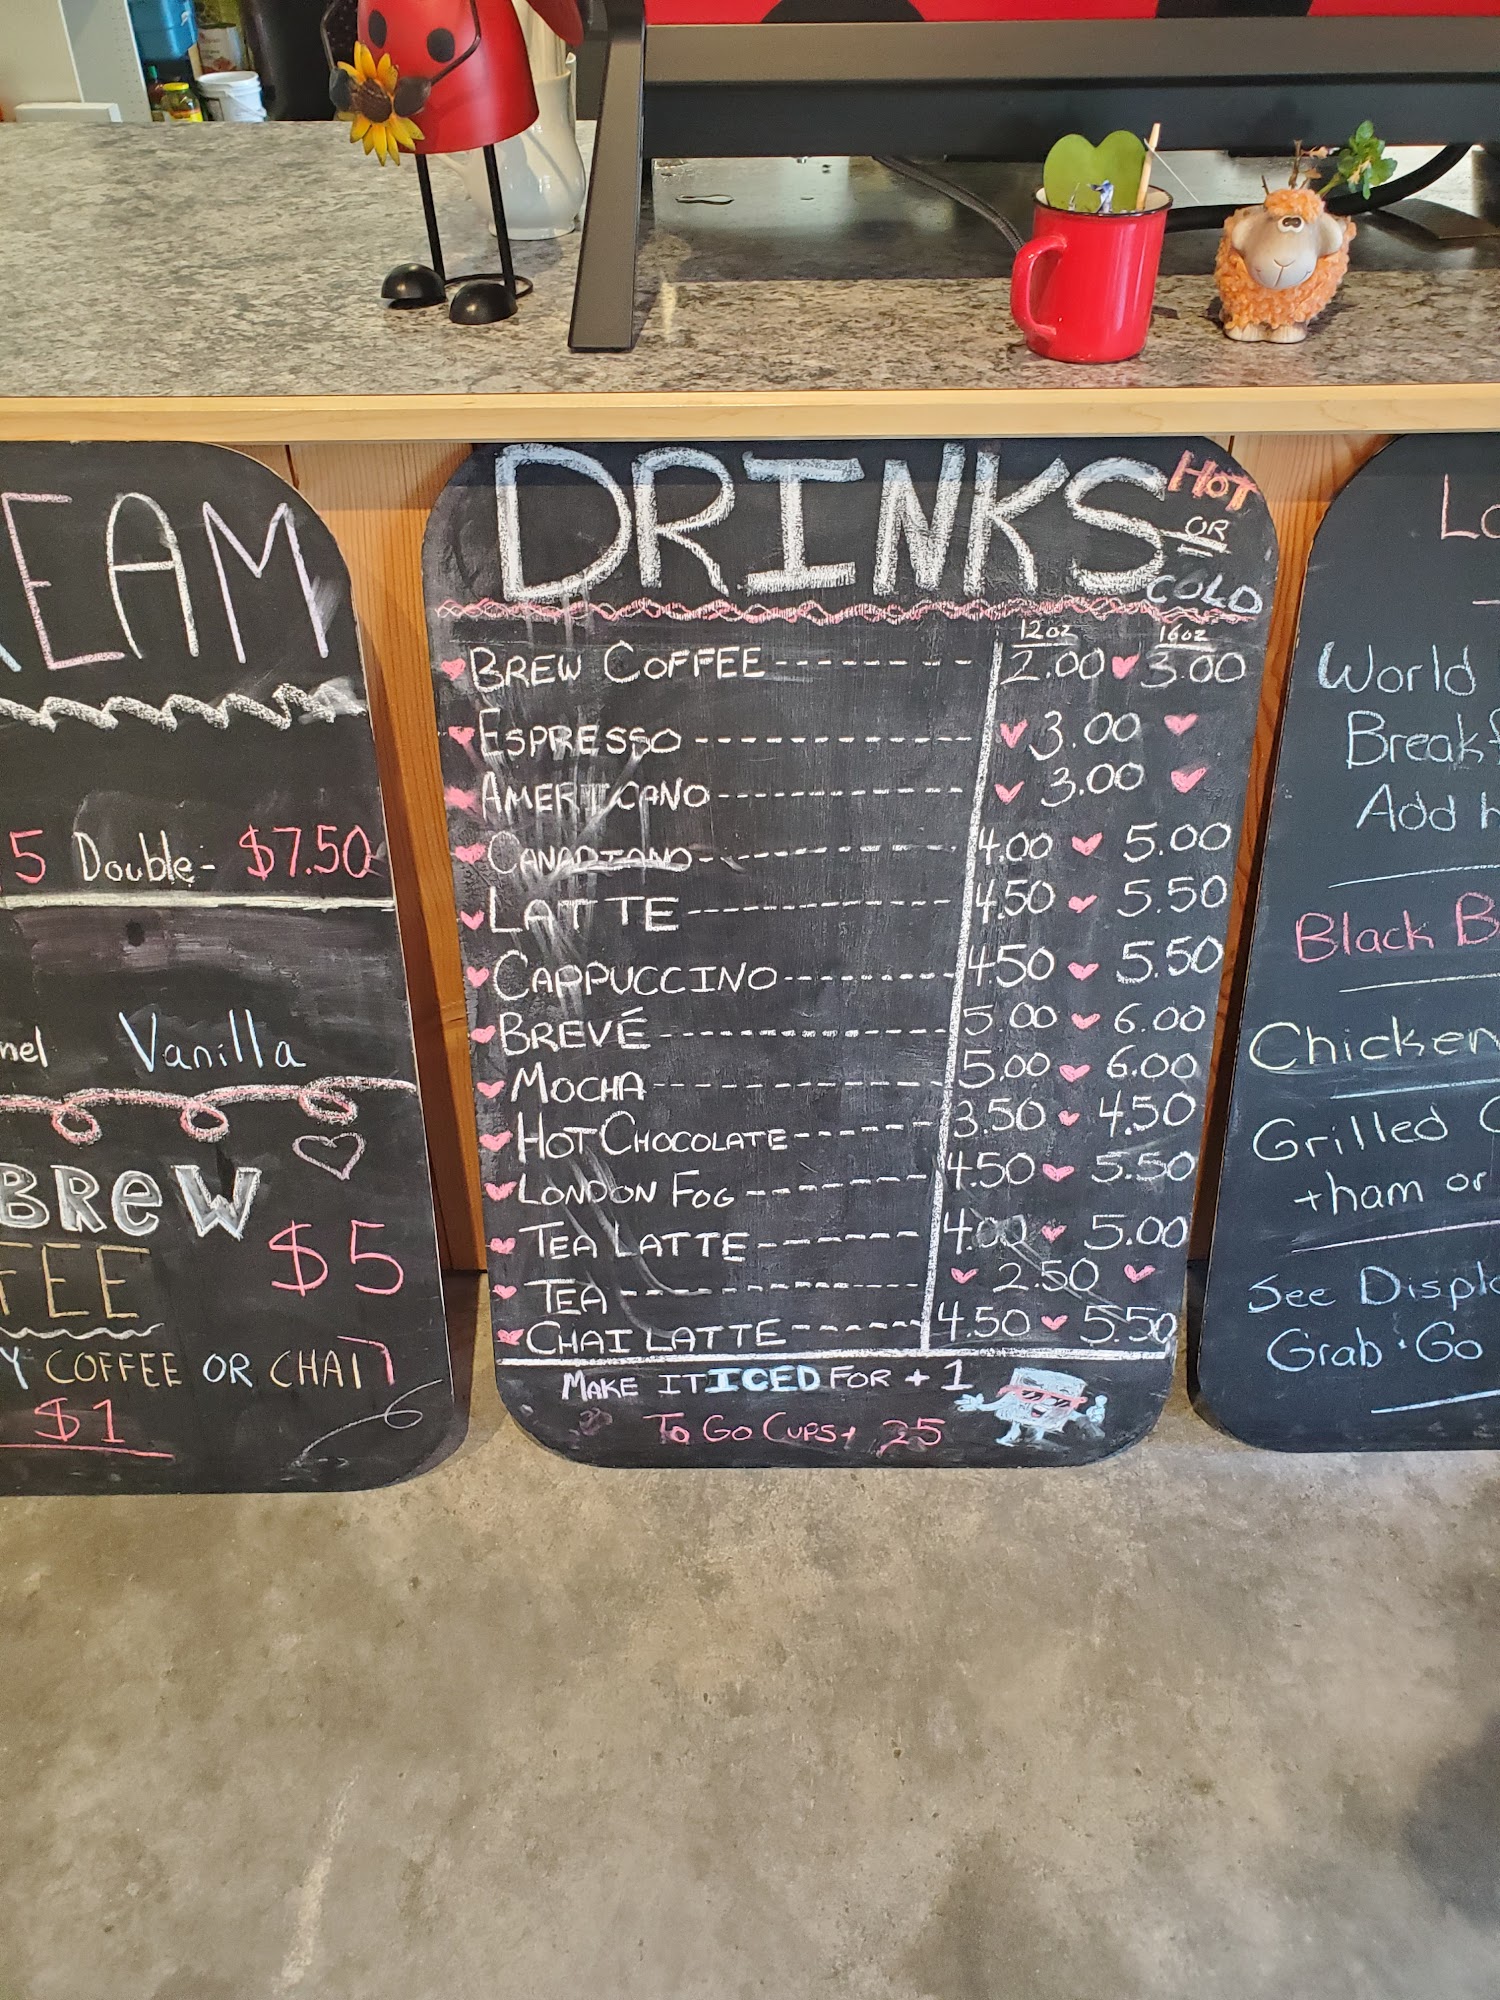 DRINKS HOT OR COLD
12oz 16oz
BREW COFFEE 2.00 3.00
ESPRESSO 3.00
AMERICANO 3.00
CANADIANO 4.00 5.00
LATTE 4.50 5.50
CAPPUCCINO 4.50 5.50
BREVÉ 5.00 6.00
MOCHA 5.00 6.00
HOT CHOCOLATE 3.50 4.50
LONDON FOG 4.50 5.50
TEA LATTE 4.00 5.00
TEA 2.50
CHAI LATTE 4.50 5.50
MAKE IT ICED FOR + 1
TO GO CUPS + 25
EAM
5 Double - $7.50
Vanilla
BREW
FEE $5
Y COFFEE OR CHAI
$1
World
Break
Add
Black B
Chicken
Grilled
+ham or
See Displ
Grab · Go